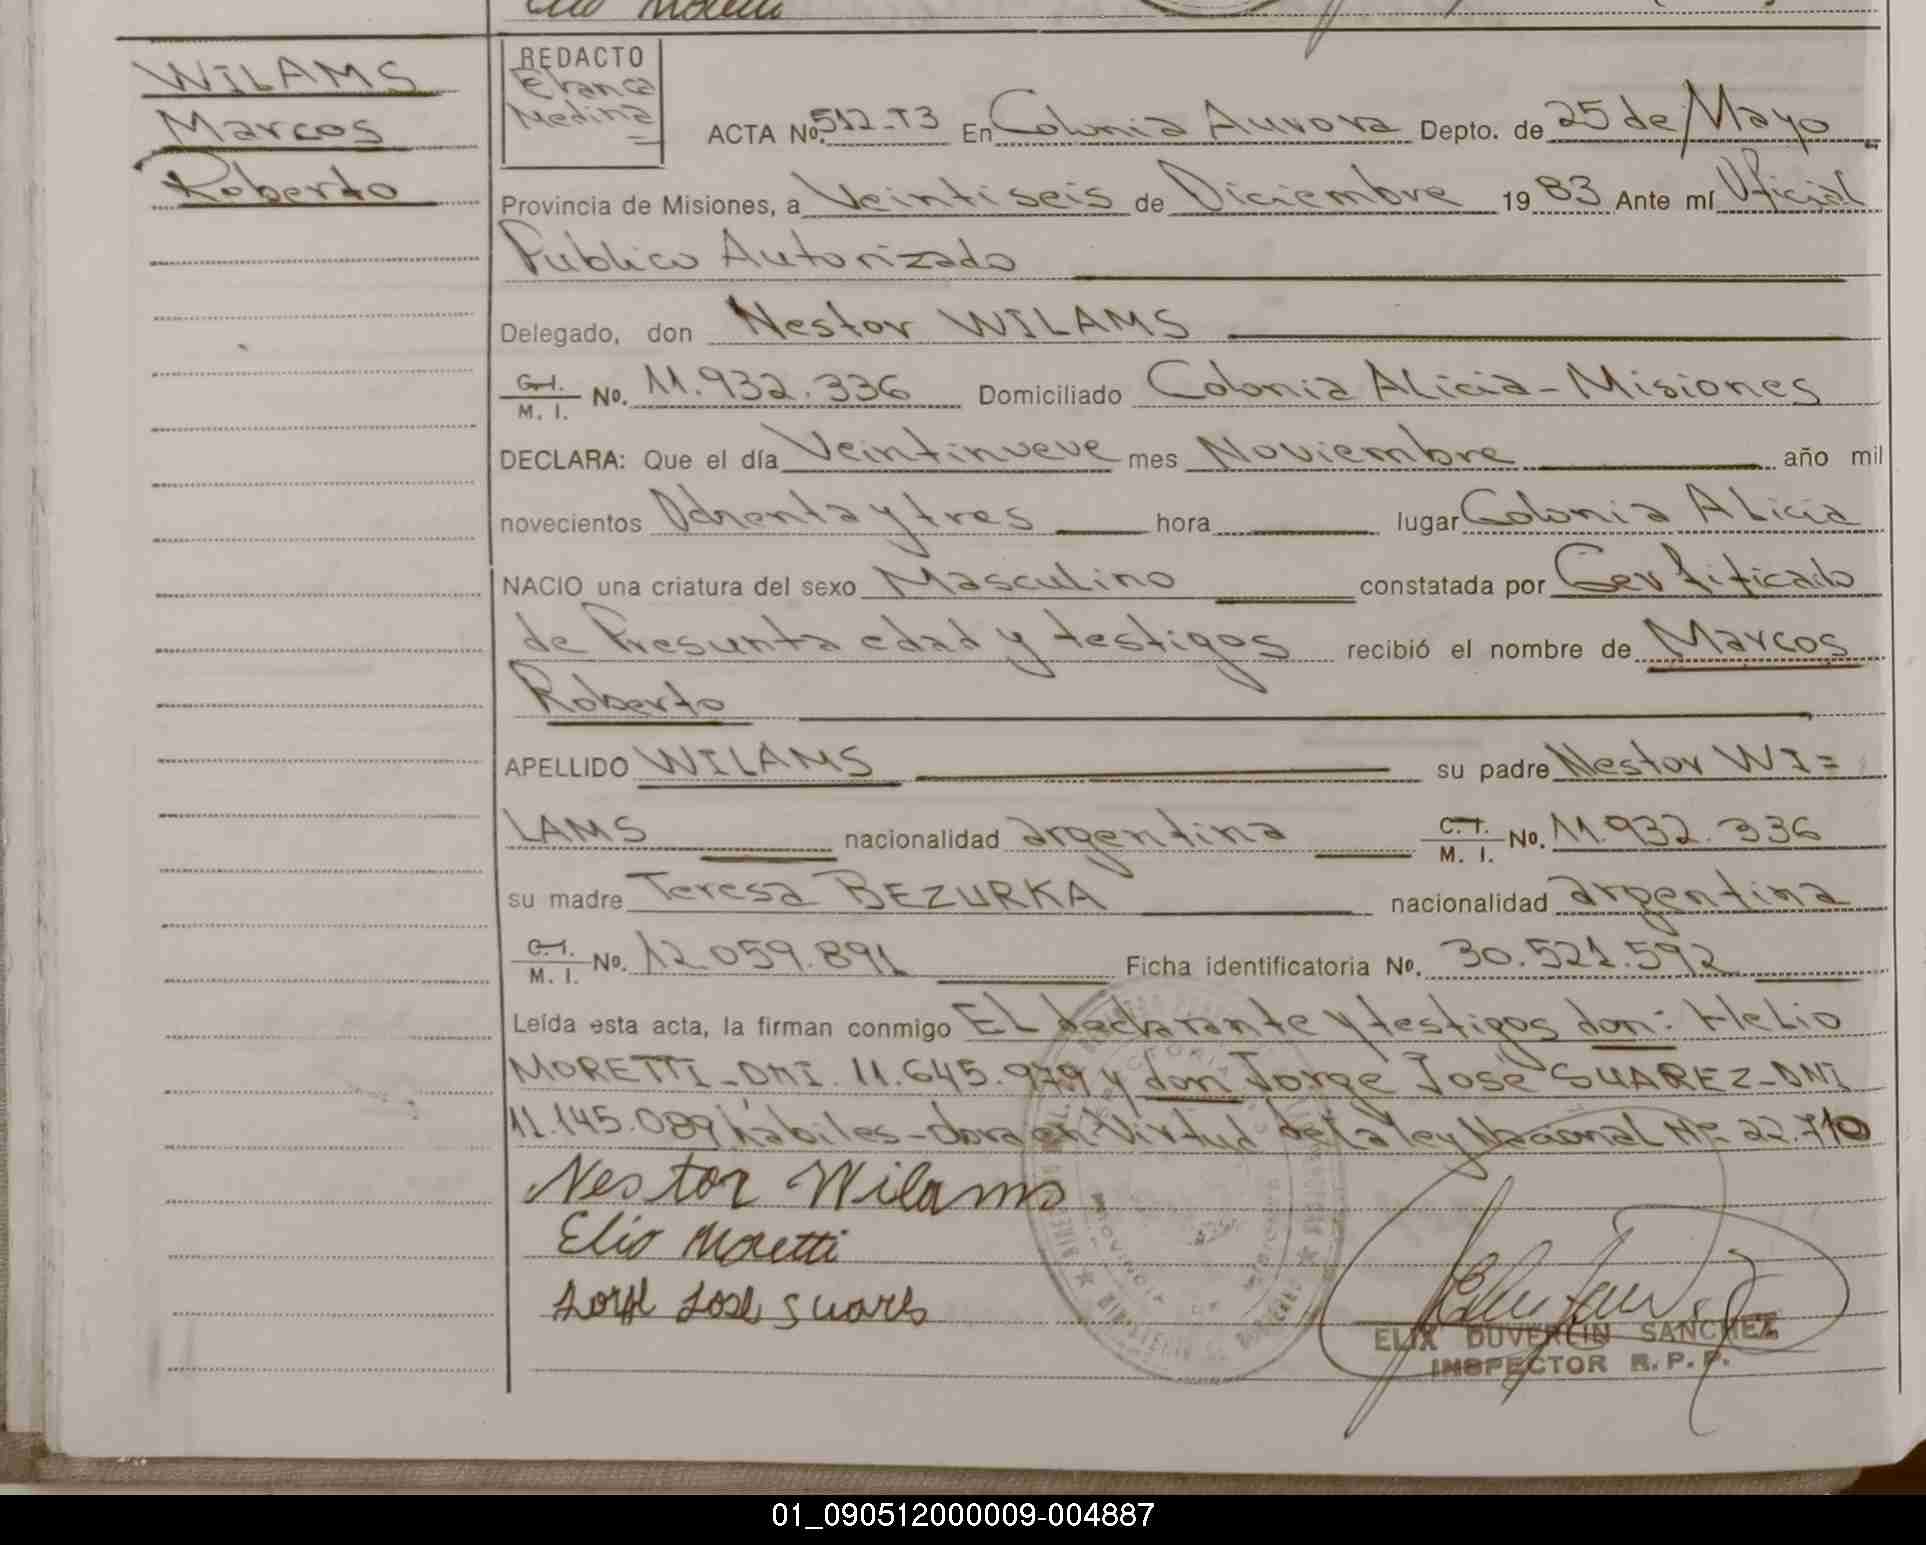 WILAMS
Marcos
Roberto
REDACTO
Medina
ACTA Nº. 512-T3 En Colonia Aurora Depto. de 25 de Mayo
Provincia de Misiones, a Veintiseis de Diciembre 19 83 Ante mí Oficial
Publico Autorizado
Delegado, don Nestor WILAMS
C. I. / M. I. Nº. 11.932.336 Domiciliado Colonia ALicia - Misiones
DECLARA: Que el día Veintinueve mes Noviembre año mil
novecientos Ochenta y tres hora lugar Colonia ALicia
NACIO una criatura del sexo Masculino constatada por Certificado
de Presunta edad y testigos recibió el nombre de Marcos
Roberto
APELLIDO WILAMS su padre Nestor WI=
LAMS nacionalidad argentina C. I. / M. I. Nº. 11.932.336
su madre Teresa BEZURKA nacionalidad argentina
C. I. / M. I. Nº. 12.059.891 Ficha identificatoria Nº. 30.521.592
Leída esta acta, la firman conmigo EL declarante y testigos don: HeLio
MORETTI - DNI. 11.645.979 y don Jorge José SUAREZ - DNI
11.145.089 hábiles - Virtud de La Ley Nacional Nº 22.710
Nestor Wilams
Elio Moretti
Jorge Jose Suares
PROVINCIA DE MISIONES
ELIX DUVERLIN SANCHEZ
INSPECTOR R. P. P.
01_090512000009-004887